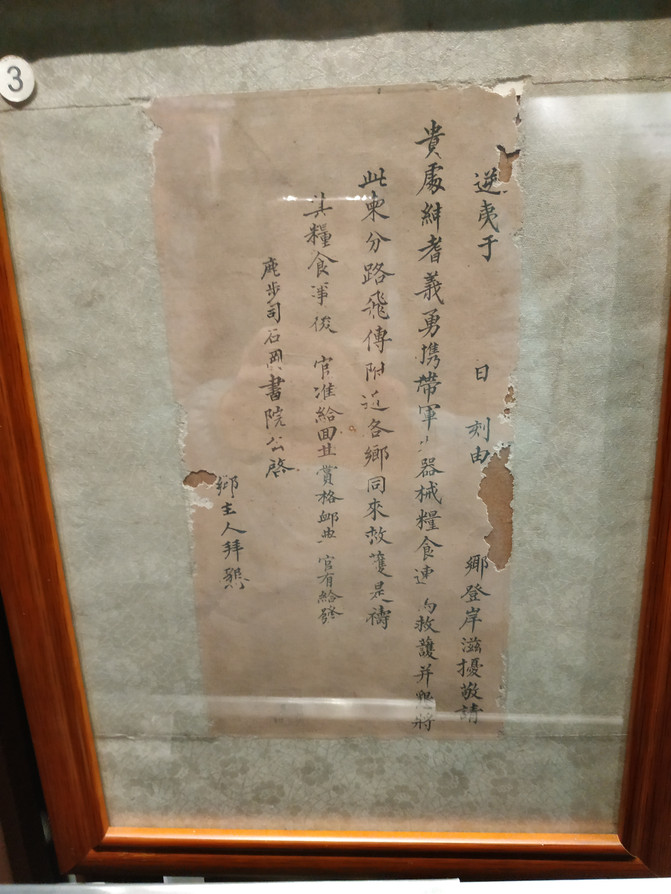 3
逆夷于　日　刻由　鄉登岸滋擾敬請
貴處紳耆義勇携帶軍火器械糧食連　向救護并懇將
此柬分路飛傳附近各鄉同來救護是禱
其糧食事後　官准給囬其賞格卹典　官有給發
鹿步司石岡書院公啓
鄉主人拜懇